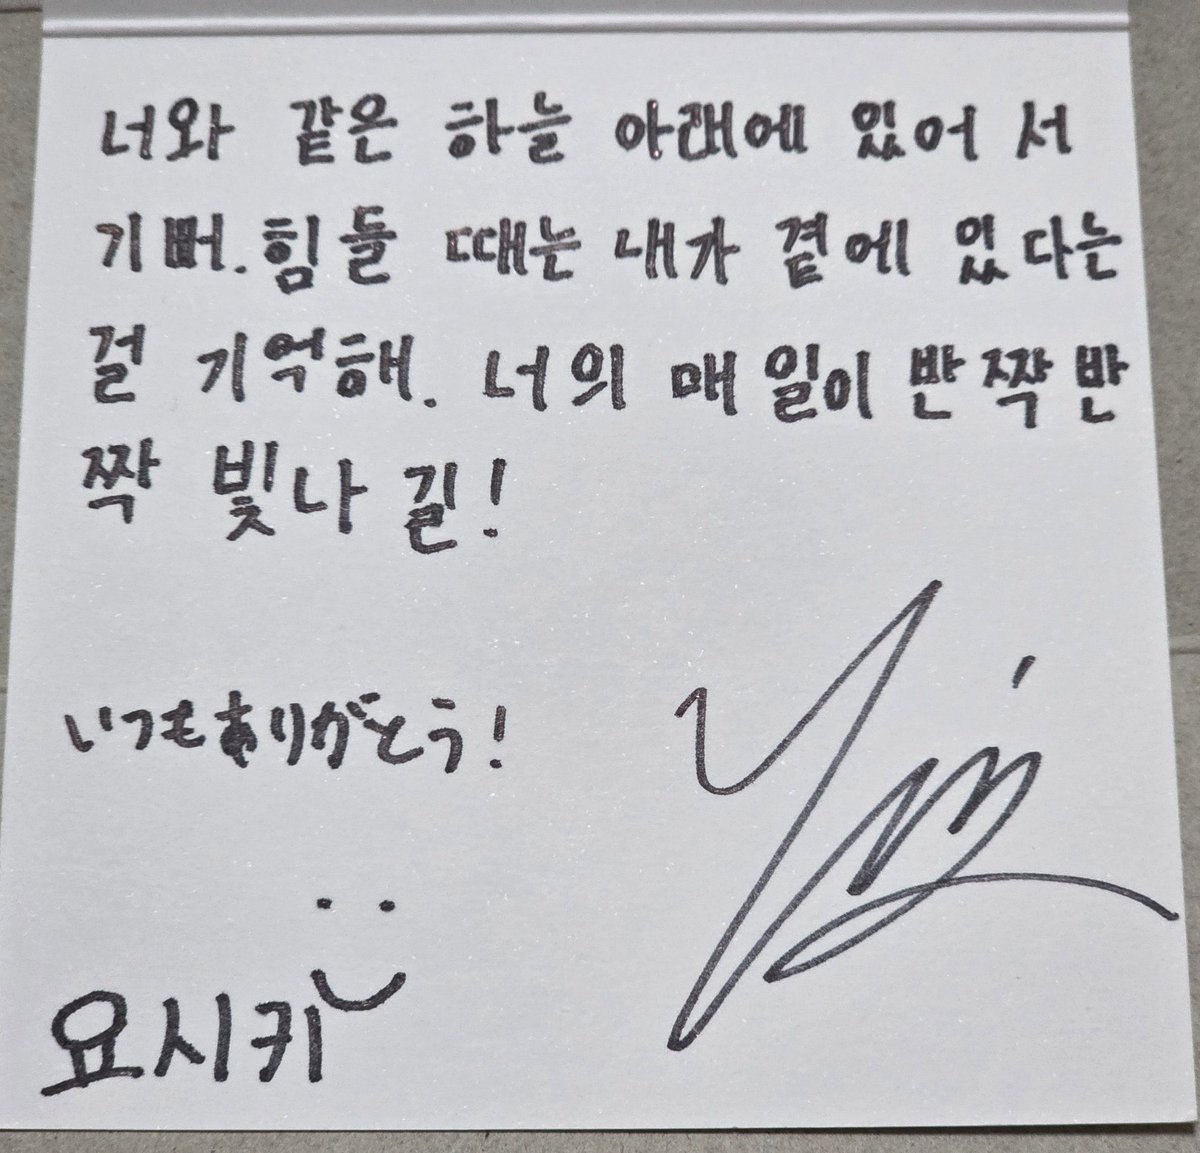 너와 같은 하늘 아래에 있어서
기뻐. 힘들 때는 내가 곁에 있다는
걸 기억해. 너의 매일이 반짝반
짝 빛나길!
いつもありがとう!
요시키